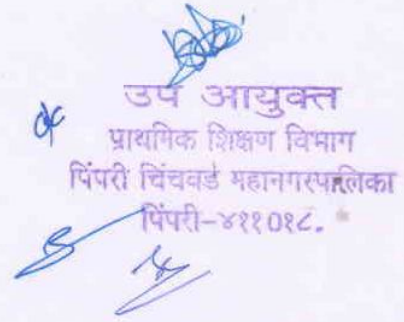 उप आयुक्त
प्राथमिक शिक्षण विभाग
पिंपरी चिंचवड महानगरपालिका
पिंपरी-४११०१८.